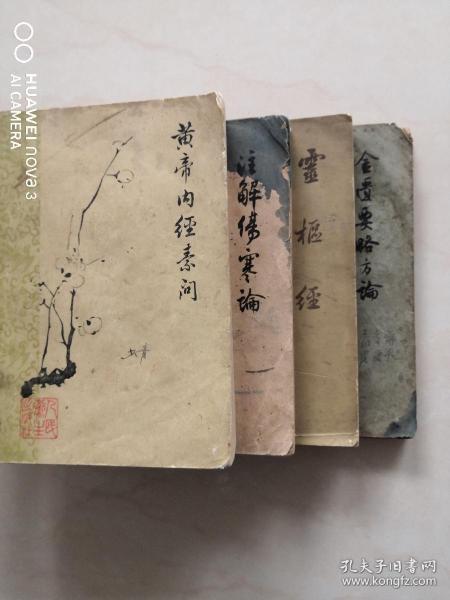 HUAWEI nova 3
AI CAMERA
黄帝内經素问
注解傷寒論
靈樞經
金匱要略方論
孔夫子旧书网
www.kongfz.com